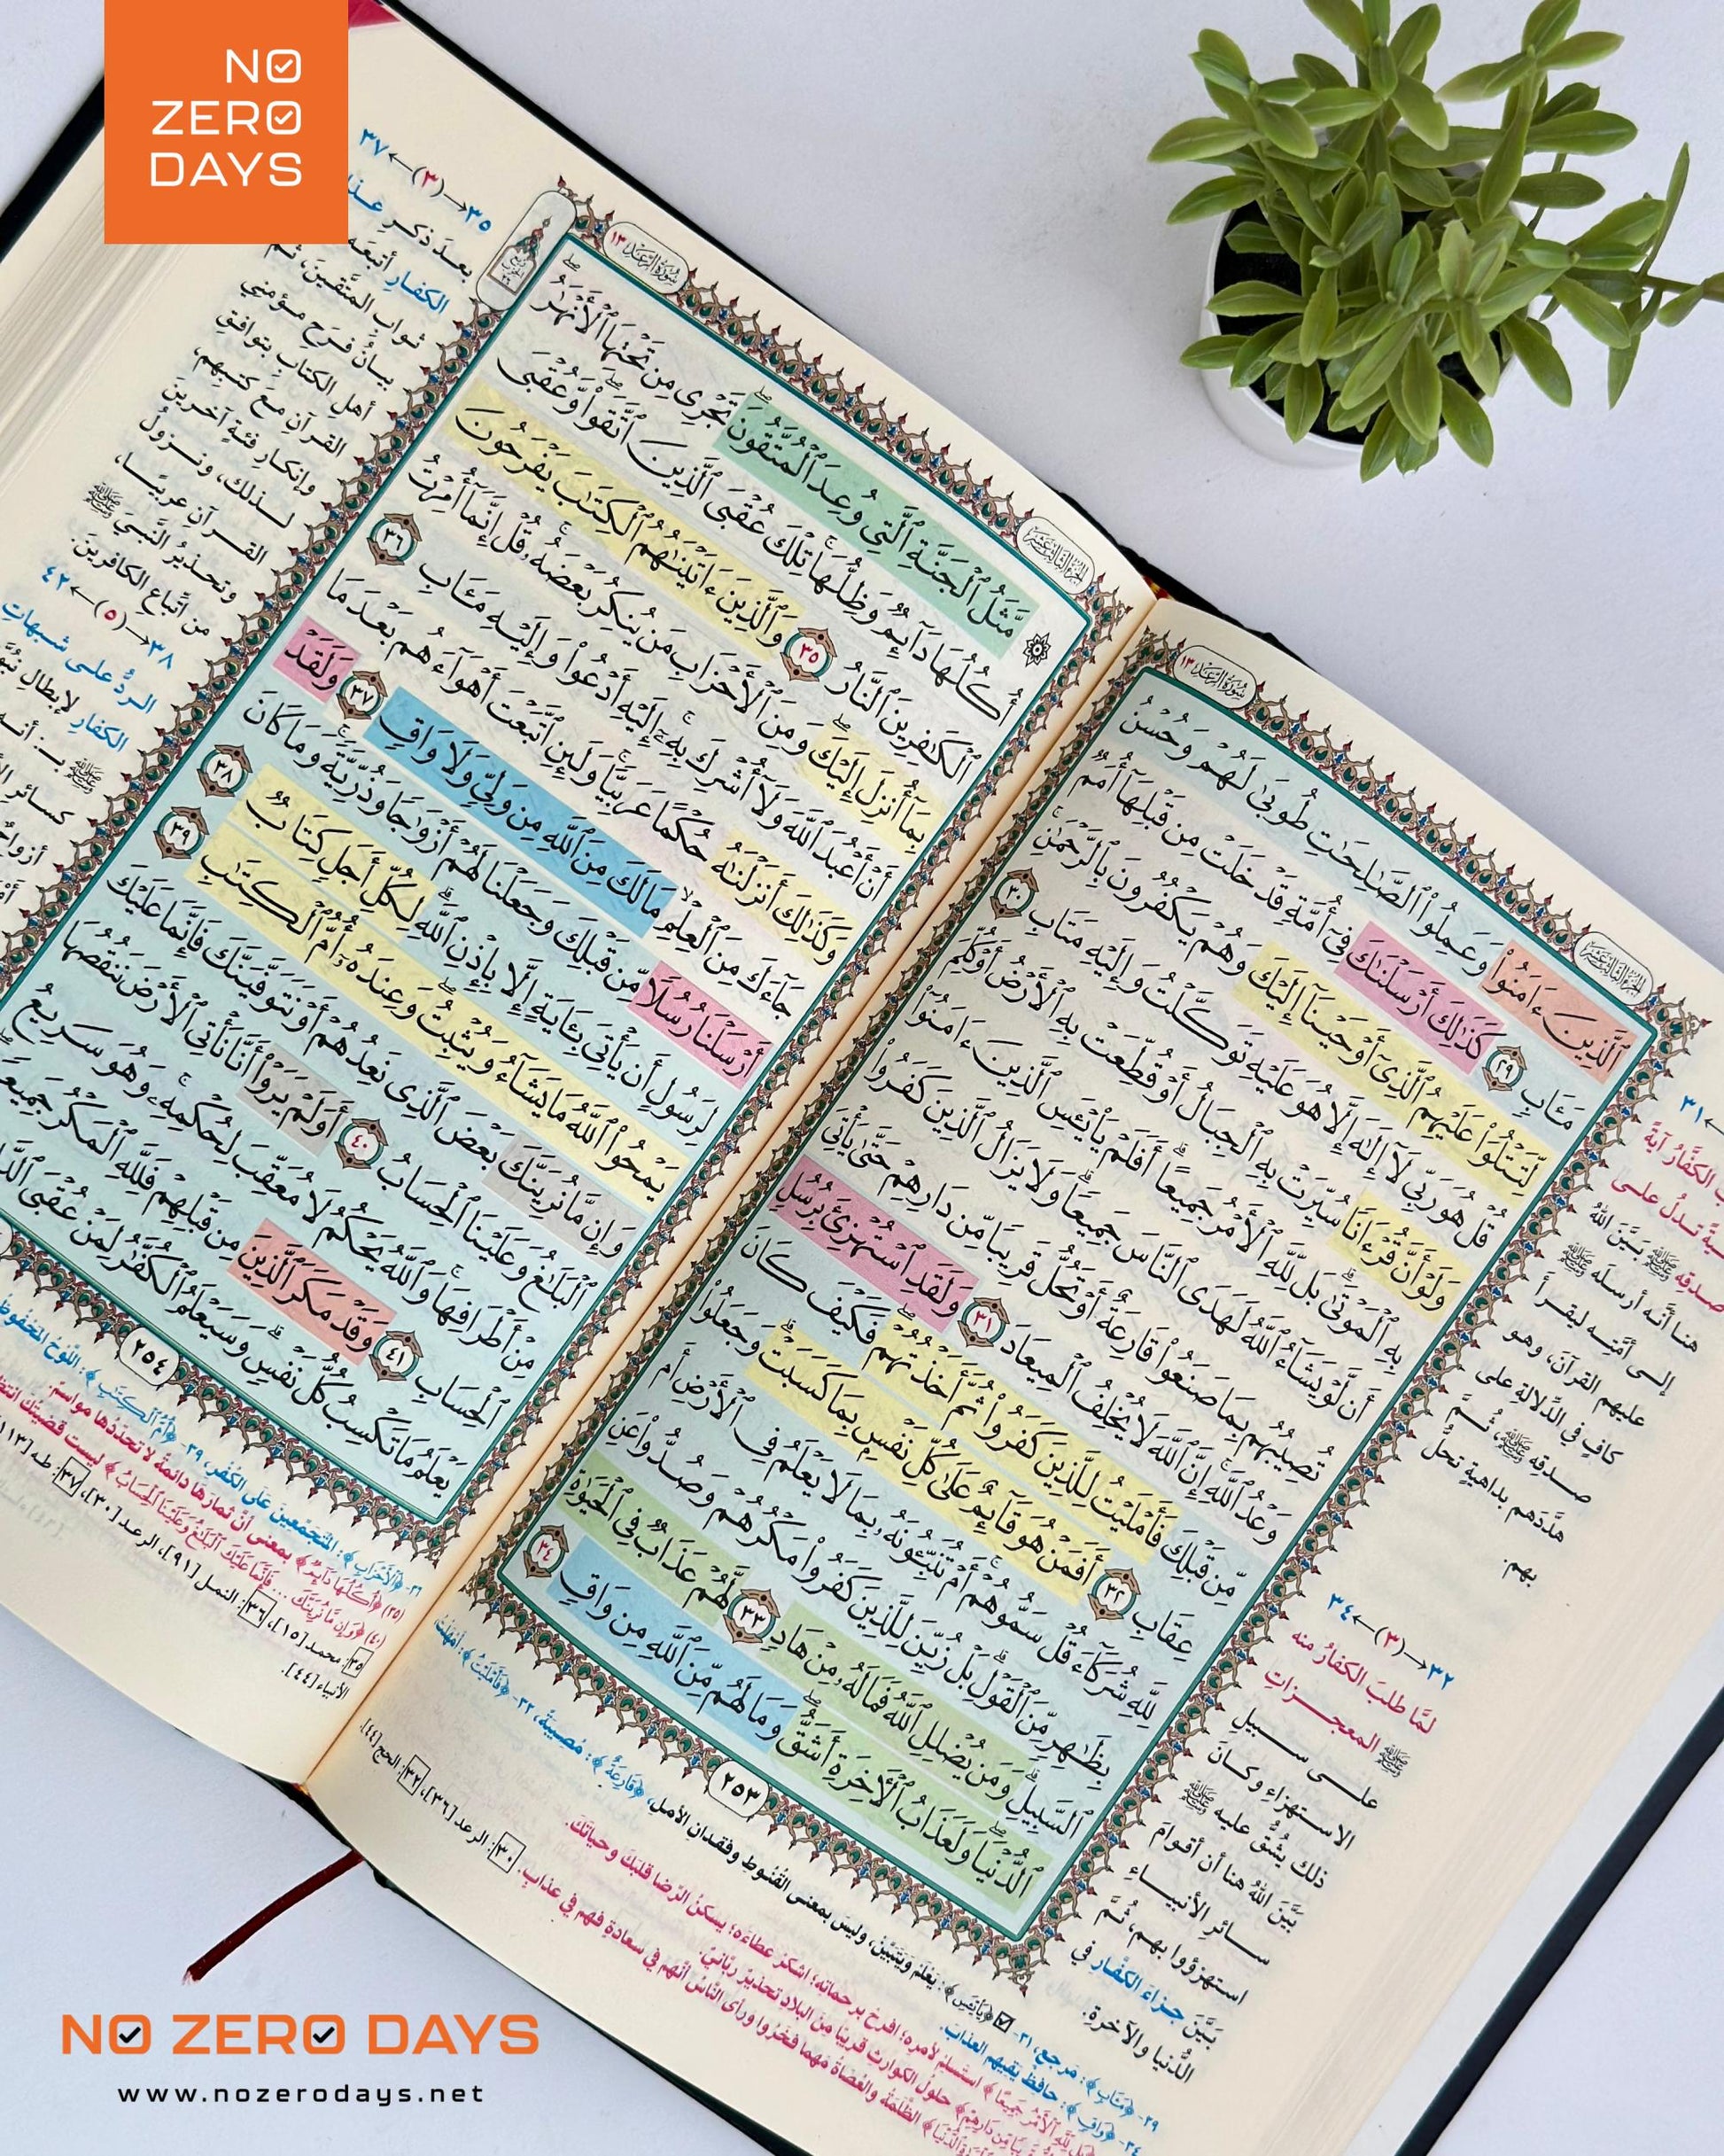 NO
ZERO
DAYS
سُورَةُ الرَّعْدِ ١٣
الجُزْءُ الثَّالِثَ عَشَرَ
ٱلَّذِينَ ءَامَنُوا۟ وَعَمِلُوا۟ ٱلصَّٰلِحَٰتِ طُوبَىٰ لَهُمْ وَحُسْنُ
مَـَٔابٍ ٢٩ كَذَٰلِكَ أَرْسَلْنَٰكَ فِىٓ أُمَّةٍ قَدْ خَلَتْ مِن قَبْلِهَآ أُمَمٌ
لِّتَتْلُوَا۟ عَلَيْهِمُ ٱلَّذِىٓ أَوْحَيْنَآ إِلَيْكَ وَهُمْ يَكْفُرُونَ بِٱلرَّحْمَٰنِ ۚ
قُلْ هُوَ رَبِّى لَآ إِلَٰهَ إِلَّا هُوَ عَلَيْهِ تَوَكَّلْتُ وَإِلَيْهِ مَتَابِ ٣٠
وَلَوْ أَنَّ قُرْءَانًا سُيِّرَتْ بِهِ ٱلْجِبَالُ أَوْ قُطِّعَتْ بِهِ ٱلْأَرْضُ أَوْ كُلِّمَ
بِهِ ٱلْمَوْتَىٰ ۗ بَل لِّلَّهِ ٱلْأَمْرُ جَمِيعًا ۗ أَفَلَمْ يَا۟يْـَٔسِ ٱلَّذِينَ ءَامَنُوٓا۟
أَن لَّوْ يَشَآءُ ٱللَّهُ لَهَدَى ٱلنَّاسَ جَمِيعًا ۗ وَلَا يَزَالُ ٱلَّذِينَ كَفَرُوا۟
تُصِيبُهُم بِمَا صَنَعُوا۟ قَارِعَةٌ أَوْ تَحُلُّ قَرِيبًا مِّن دَارِهِمْ حَتَّىٰ يَأْتِىَ
وَعْدُ ٱللَّهِ ۚ إِنَّ ٱللَّهَ لَا يُخْلِفُ ٱلْمِيعَادَ ٣١ وَلَقَدِ ٱسْتُهْزِئَ بِرُسُلٍ
مِّن قَبْلِكَ فَأَمْلَيْتُ لِلَّذِينَ كَفَرُوا۟ ثُمَّ أَخَذْتُهُمْ ۖ فَكَيْفَ كَانَ
عِقَابِ ٣٢ أَفَمَنْ هُوَ قَآئِمٌ عَلَىٰ كُلِّ نَفْسٍۭ بِمَا كَسَبَتْ ۗ وَجَعَلُوا۟
لِلَّهِ شُرَكَآءَ قُلْ سَمُّوهُمْ ۚ أَمْ تُنَبِّـُٔونَهُۥ بِمَا لَا يَعْلَمُ فِى ٱلْأَرْضِ أَم
بِظَٰهِرٍ مِّنَ ٱلْقَوْلِ ۗ بَلْ زُيِّنَ لِلَّذِينَ كَفَرُوا۟ مَكْرُهُمْ وَصُدُّوا۟ عَنِ
ٱلسَّبِيلِ ۗ وَمَن يُضْلِلِ ٱللَّهُ فَمَا لَهُۥ مِنْ هَادٍ ٣٣ لَّهُمْ عَذَابٌ فِى ٱلْحَيَوٰةِ
ٱلدُّنْيَا ۖ وَلَعَذَابُ ٱلْءَاخِرَةِ أَشَقُّ ۖ وَمَا لَهُم مِّنَ ٱللَّهِ مِن وَاقٍ ٣٤
٢٥٣
صدقِه ﷺ بَيَّنَ اللهُ
هنا أنَّه أرسلَه ﷺ
إلى أمَّتِه ليقرأَ
عليهم القرآنَ، وهو
كافٍ في الدَّلالةِ على
صدقِه ﷺ، ثُمَّ
هدَّدَهم بداهيةٍ تحلُّ
بهم.
٣٢←(٣)→٣٤
لمَّا طلبَ الكفارُ منه
ﷺ المعجزاتِ
على سبيلِ
الاستهزاءِ وكانَ
ذلك يشُقُّ عليه ﷺ
بَيَّنَ اللهُ هنا أن أقوامَ
سائرِ الأنبياءِ
استهزؤوا بهم، ثُمَّ
بَيَّنَ جزاءَ الكفَّارِ في
الدُّنيا والآخرةِ.
٢٩- ﴿مَـَٔابٍ﴾: مَرجعٍ، ٣١- ﴿يَا۟يْـَٔسِ﴾: يَعْلَمْ وَيَتَبَيَّنْ، وليسَ بمعنى القُنُوطِ وفقدانِ الأملِ، ﴿قَارِعَةٌ﴾: مُصِيبَةٌ، ٣٢- ﴿فَأَمْلَيْتُ﴾: أَمْهَلْتُ
٣٤- ﴿وَاقٍ﴾: حافظٍ يَقِيهم العذابَ.
٣٠: الرعد [٣٦]، ٣٢: الحج [٤٤].
سُورَةُ الرَّعْدِ ١٣
الجُزْءُ الثَّالِثَ عَشَرَ
مَّثَلُ ٱلْجَنَّةِ ٱلَّتِى وُعِدَ ٱلْمُتَّقُونَ ۖ تَجْرِى مِن تَحْتِهَا ٱلْأَنْهَٰرُ ۖ
أُكُلُهَا دَآئِمٌ وَظِلُّهَا ۚ تِلْكَ عُقْبَى ٱلَّذِينَ ٱتَّقَوا۟ ۖ وَّعُقْبَى
ٱلْكَٰفِرِينَ ٱلنَّارُ ٣٥ وَٱلَّذِينَ ءَاتَيْنَٰهُمُ ٱلْكِتَٰبَ يَفْرَحُونَ
بِمَآ أُنزِلَ إِلَيْكَ ۖ وَمِنَ ٱلْأَحْزَابِ مَن يُنكِرُ بَعْضَهُۥ ۚ قُلْ إِنَّمَآ أُمِرْتُ
أَنْ أَعْبُدَ ٱللَّهَ وَلَآ أُشْرِكَ بِهِۦٓ ۚ إِلَيْهِ أَدْعُوا۟ وَإِلَيْهِ مَـَٔابِ ٣٦
وَكَذَٰلِكَ أَنزَلْنَٰهُ حُكْمًا عَرَبِيًّا ۚ وَلَئِنِ ٱتَّبَعْتَ أَهْوَآءَهُم بَعْدَ مَا
جَآءَكَ مِنَ ٱلْعِلْمِ مَا لَكَ مِنَ ٱللَّهِ مِن وَلِىٍّ وَلَا وَاقٍ ٣٧ وَلَقَدْ
أَرْسَلْنَا رُسُلًا مِّن قَبْلِكَ وَجَعَلْنَا لَهُمْ أَزْوَٰجًا وَذُرِّيَّةً ۚ وَمَا كَانَ
لِرَسُولٍ أَن يَأْتِىَ بِـَٔايَةٍ إِلَّا بِإِذْنِ ٱللَّهِ ۗ لِكُلِّ أَجَلٍ كِتَابٌ ٣٨
يَمْحُوا۟ ٱللَّهُ مَا يَشَآءُ وَيُثْبِتُ ۖ وَعِندَهُۥٓ أُمُّ ٱلْكِتَٰبِ ٣٩
وَإِن مَّا نُرِيَنَّكَ بَعْضَ ٱلَّذِى نَعِدُهُمْ أَوْ نَتَوَفَّيَنَّكَ فَإِنَّمَا عَلَيْكَ
ٱلْبَلَٰغُ وَعَلَيْنَا ٱلْحِسَابُ ٤٠ أَوَلَمْ يَرَوْا۟ أَنَّا نَأْتِى ٱلْأَرْضَ نَنقُصُهَا
مِنْ أَطْرَافِهَا ۚ وَٱللَّهُ يَحْكُمُ لَا مُعَقِّبَ لِحُكْمِهِۦ ۚ وَهُوَ سَرِيعُ
ٱلْحِسَابِ ٤١ وَقَدْ مَكَرَ ٱلَّذِينَ مِن قَبْلِهِمْ فَلِلَّهِ ٱلْمَكْرُ جَمِيعًا ۖ
يَعْلَمُ مَا تَكْسِبُ كُلُّ نَفْسٍ ۗ وَسَيَعْلَمُ ٱلْكُفَّٰرُ لِمَنْ عُقْبَى
٢٥٤
٣٥←(٣)→٣٧
بعدَ ذكرِ
الكفارِ أتبعَه
ثوابِ المتَّقينَ، ثُمَّ
بيانُ فرَحِ مؤمني
أهلِ الكتابِ بتوافقِ
القرآنِ معَ كتبِهم،
وإنكارِ فئةٍ آخرينَ
لذلك، ونزولُ
القرآنِ عربيًّا،
وتحذيرُ النَّبيِّ ﷺ
من اتِّباعِ الكافرينَ.
٣٨←(٥)→٤٢
الردُّ على شبهاتِ
الكفارِ لإبطالِ
٣٦- ﴿ٱلْأَحْزَابِ﴾: المُتَجَمِّعينَ عَلَى الكُفْرِ، ٣٩- ﴿أُمُّ ٱلْكِتَٰبِ﴾: اللَّوْحُ المَحْفُوظُ
(٣٥) ﴿أُكُلُهَا دَآئِمٌ﴾ بمعنى أنَّ ثمارَها دائمةٌ لا تحدِّدُها مواسمُ.
٣٥: محمد [١٥]، ٣٦: النمل [٩١]، الرعد [٣٠]، ٣٧: طه [١١٣]
الأنبياء [٤٤].
NO ZERO DAYS
www.nozerodays.net